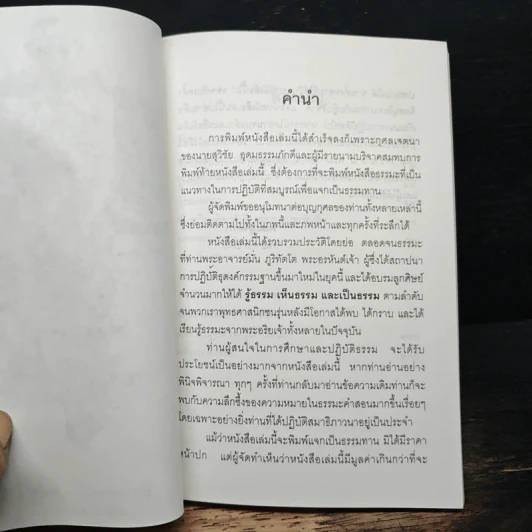 คำนำ
การพิมพ์หนังสือเล่มนี้ได้สำเร็จลงก็เพราะกุศลเจตนา
ของนายสุวิชัย อุดมธรรมภักดีและผู้มีรายนามบริจาคสมทบการ
พิมพ์ท้ายหนังสือเล่มนี้ ซึ่งต้องการที่จะพิมพ์หนังสือธรรมะที่เป็น
แนวทางในการปฏิบัติที่สมบูรณ์เพื่อแจกเป็นธรรมทาน
ผู้จัดพิมพ์ขออนุโมทนาต่อบุญกุศลของท่านทั้งหลายเหล่านี้
ซึ่งย่อมติดตามไปทั้งในภพนี้และภพหน้าและทุกครั้งที่ระลึกได้
หนังสือเล่มนี้ได้รวบรวมประวัติโดยย่อ ตลอดจนธรรมะ
ที่ท่านพระอาจารย์มั่น ภูริทัตโต พระอรหันต์เจ้า ผู้ซึ่งได้สถาปนา
การปฏิบัติธุดงค์กรรมฐานขึ้นมาใหม่ในยุคนี้ และได้อบรมลูกศิษย์
จำนวนมากให้ได้ รู้ธรรม เห็นธรรม และเป็นธรรม ตามลำดับ
จนพวกเราพุทธศาสนิกชนรุ่นหลังมีโอกาสได้พบ ได้กราบ และได้
เรียนรู้ธรรมะจากพระอริยเจ้าทั้งหลายในปัจจุบัน
ท่านผู้สนใจในการศึกษาและปฏิบัติธรรม จะได้รับ
ประโยชน์เป็นอย่างมากจากหนังสือเล่มนี้ หากท่านอ่านอย่าง
พินิจพิจารณา ทุกๆ ครั้งที่ท่านกลับมาอ่านข้อความเดิมท่านก็จะ
พบกับความลึกซึ้งของความหมายในธรรมะคำสอนมากขึ้นเรื่อยๆ
โดยเฉพาะอย่างยิ่งท่านที่ได้ปฏิบัติสมาธิภาวนาอยู่เป็นประจำ
แม้ว่าหนังสือเล่มนี้จะพิมพ์แจกเป็นธรรมทาน มิได้มีราคา
หน้าปก แต่ผู้จัดทำเห็นว่าหนังสือเล่มนี้มีมูลค่าเกินกว่าที่จะ